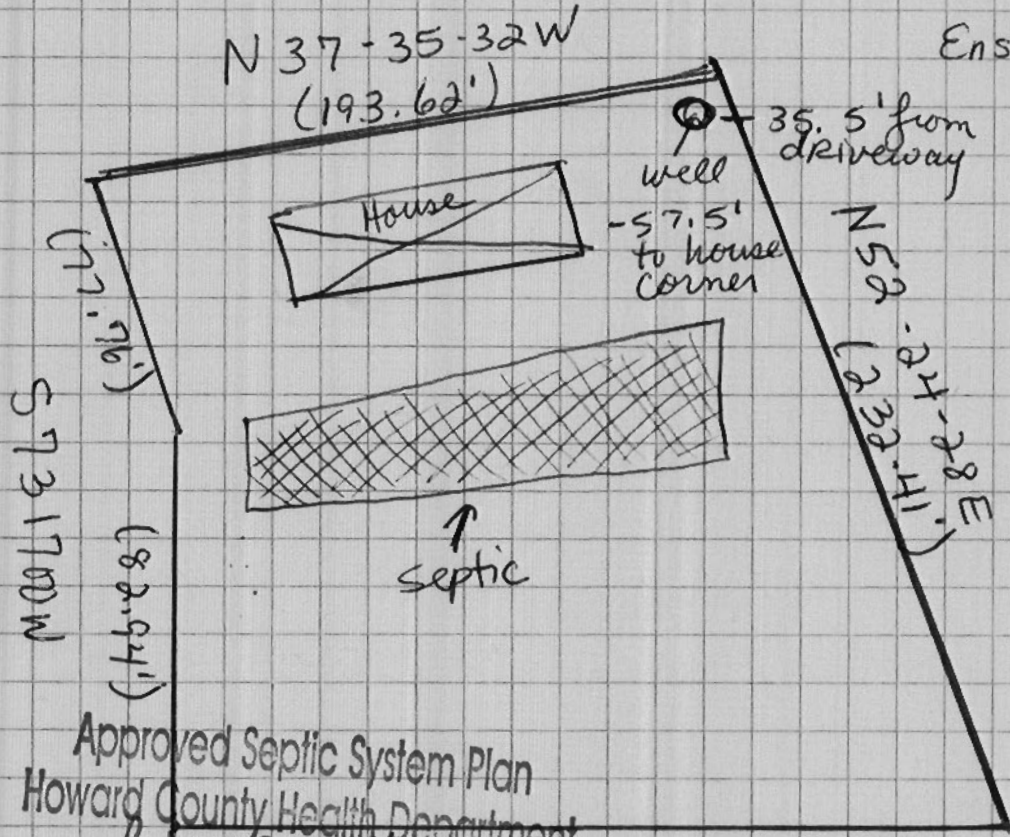 N 37-35-32W
(193.62')
Ens
35.5' from
driveway
well
House
-57.5'
to house
corner
N52-24-28E
(232.41')
(77.76')
S731700W
(82.94')
septic
Approved Septic System Plan
Howard County Health Department